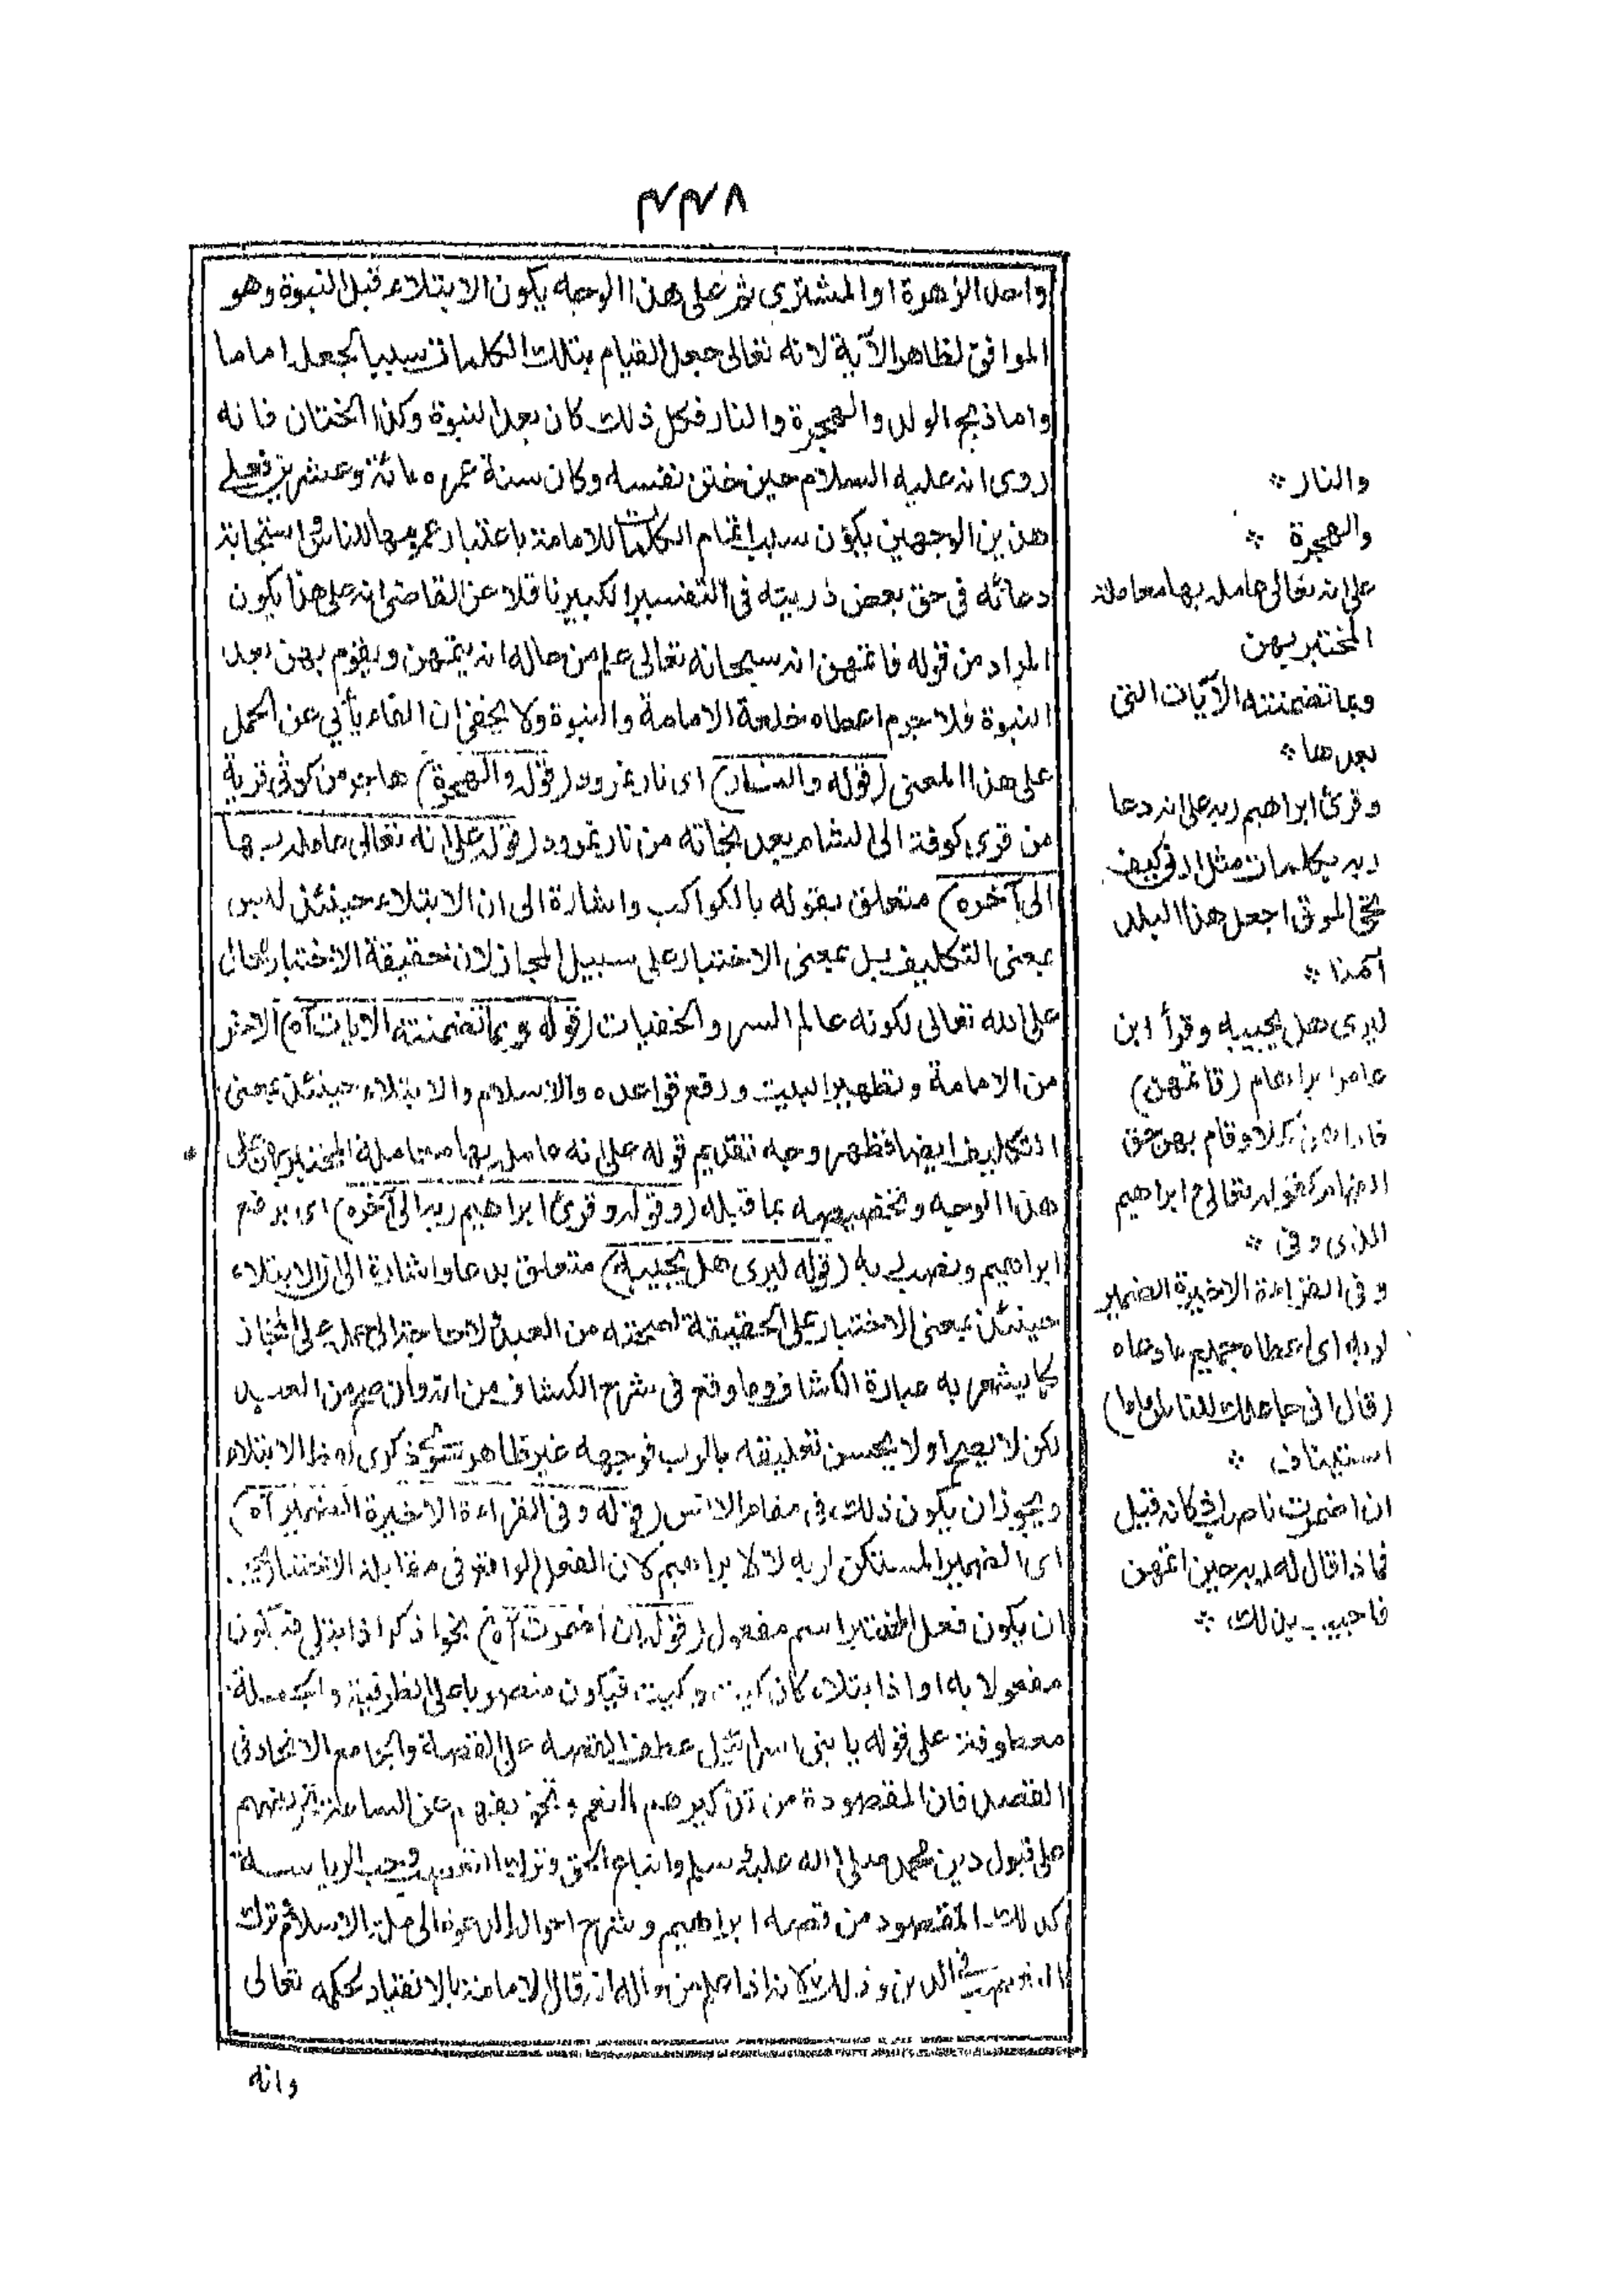 ٣٣٨
واحدا لزهرة او المشتری ثم علی هذا الوجه یکون الابتلاء قبل النبوة وهو
الموافق لظاهر الآیة لانه تعالی جعل القیام بتلك الکلمات سببا لجعله اماما
واما ذبح الولد والهجرة والنار فکل ذلك کان بعد النبوة وکذا الختان فانه
روی انه علیه السلام حین ختن نفسه وکان سنة عمره مائة وعشرین فعلی
هذین الوجهین یکون سبب اتمام الکلمات للامامة باعتبار عمومها للناس واستجابة
دعائه فی حق بعض ذریته فی التفسیر الکبیر ناقلا عن القاضی انه علی هذا یکون
المراد من قوله فاتمهن انه سبحانه تعالی علم من حاله انه یتمهن ویقوم بهن بعد
النبوة فلا جرم اعطاه خلعة الامامة والنبوة ولا یخفی ان الفاء یأبی عن الحمل
علی هذا المعنی (قوله والنار) ای نار نمرود (قوله والهجرة) هاجر من کوثی قریة
من قری کوفة الی الشام بعد نجاته من نار نمرود (قوله علی انه تعالی عامله بها
الی آخره) متعلق بقوله بالکواکب واشارة الی ان الابتلاء حینئذ لیس
بمعنی التکلیف بل بمعنی الاختبار علی سبیل المجاز لان حقیقة الاختبار محال
علی الله تعالی لکونه عالم السر والخفیات (قوله وبما تضمنته الایات آه) الاخر
من الامامة وتطهیر البیت ورفع قواعده والاسلام والابتلاء حینئذ بمعنی
التکلیف ایضا فظهر وجه تقدیم قوله علی انه عامله بها معاملة المختبر بهن علی
هذا الوجه وتخصیصه بما قبله (وقوله وقرئ ابراهیم ربه الی آخره) ای برفع
ابراهیم ونصب ربه (قوله لیری هل یجیبه) متعلق بدعا واشارة الی ان الابتلاء
حینئذ بمعنی الاختبار علی الحقیقة لصحته من العبد لا حاجة الی حمله علی المجاز
کما یشعر به عبارة الکشاف وما وقع فی شرح الکشاف من انه وان صح من العبد
لکن لا یصح او لا یحسن تعلیقه بالرب فوجهه غیر ظاهر سوی ذکری لهذا الابتلاء
ویجوز ان یکون ذلك فی مقام الانس (قوله وفی القراءة الاخیرة الضمیر آه)
ای الضمیر المستکن لربه لا لابراهیم لان الفعل الواقع فی مقابلة الاختبار یجب
ان یکون فعل المختبر اسم مفعول (قوله ان اضمرت آه) نحو اذکر اذ ابتلی فیکون
مفعولا به او اذ ابتلاه کان کیت وکیت فیکون منصوبا علی الظرفیة والجملة
معطوفة علی قوله یا بنی اسرائیل عطف القصة علی القصة والجامع الاتحاد فی
القصد فان المقصودة من تذکیرهم النعم وتخویفهم عن الساعة تحریضهم
علی قبول دین محمد صلی الله علیه وسلم واتباع الحق وترك التعصب وحب الریاسة
کذلك المقصود من قصة ابراهیم وشرح احواله الدعوة الی ملة الاسلام وترك
التعصب فی الدین وذلك لانه اذا علم انه نال الامامة بالانقیاد لحکمه تعالی
وانه
والنار
والهجرة
علی انه تعالی عامله بها معاملة
المختبر بهن
وبما تضمنته الآیات التی
بعدها
وقرئ ابراهیم ربه علی انه دعا
ربه بکلمات مثل ارنی کیف
تحی الموتی اجعل هذا البلد
آمنا
لیری هل یجیبه وقرأ ابن
عامر ابراهام (فاتمهن)
فاداهن کملا وقام بهن حق
القیام کقوله تعالی وابراهیم
الذی وفی
وفی القراءة الاخیرة الضمیر
لربه ای اعطاه جمیع ما دعاه
(قال انی جاعلك للناس اماما)
استیناف
ان اضمرت ناصب اذ کانه قیل
فماذا قال له ربه حین اتمهن
فاجیب بذلك